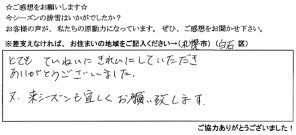 ☆ご感想をお願いします☆
今シーズンの排雪はいかがでしたか？
お客様の声が、私たちの原動力になっています。ぜひ、ご感想をお聞かせ下さい。
※差支えなければ、お住まいの地域をご記入ください→(札幌市)(白石区)
とても ていねいに きれいにしていただき
ありがとうございました。
又、来シーズンも宜しくお願い致します。
ご協力ありがとうございました！